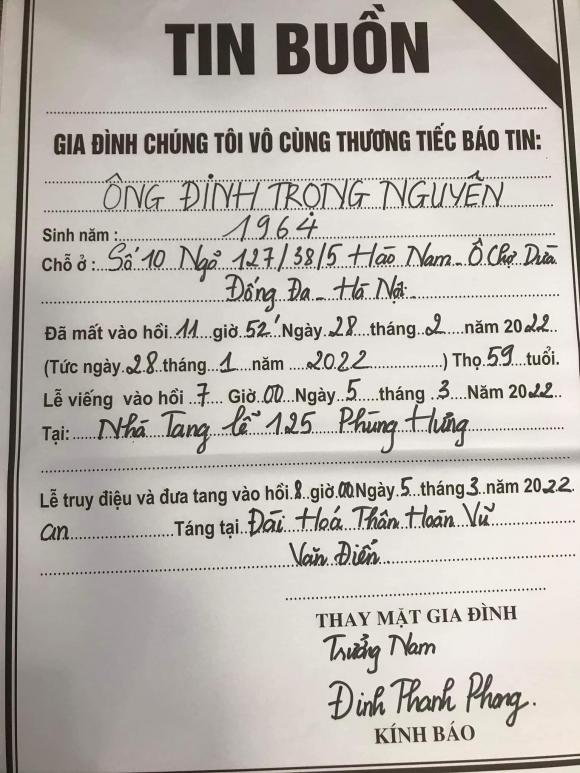 TIN BUỒN
GIA ĐÌNH CHÚNG TÔI VÔ CÙNG THƯƠNG TIẾC BÁO TIN:
ÔNG ĐINH TRỌNG NGUYÊN
Sinh năm : 1964
Chỗ ở : Số 10 Ngõ 127/38/5 Hào Nam - Ô Chợ Dừa
Đống Đa - Hà Nội
Đã mất vào hồi 11 giờ 52' Ngày 28 tháng 2 năm 2022
(Tức ngày 28 tháng 1 năm 2022 ) Thọ 59 tuổi.
Lễ viếng vào hồi 7 Giờ 00 Ngày 5 tháng 3 Năm 2022
Tại: Nhà Tang lễ 125 Phùng Hưng
Lễ truy điệu và đưa tang vào hồi 8 giờ 00 Ngày 5 tháng 3 năm 2022
an Táng tại Đài Hoá Thân Hoàn Vũ
Văn Điển
THAY MẶT GIA ĐÌNH
Trưởng Nam
Đinh Thanh Phong.
KÍNH BÁO